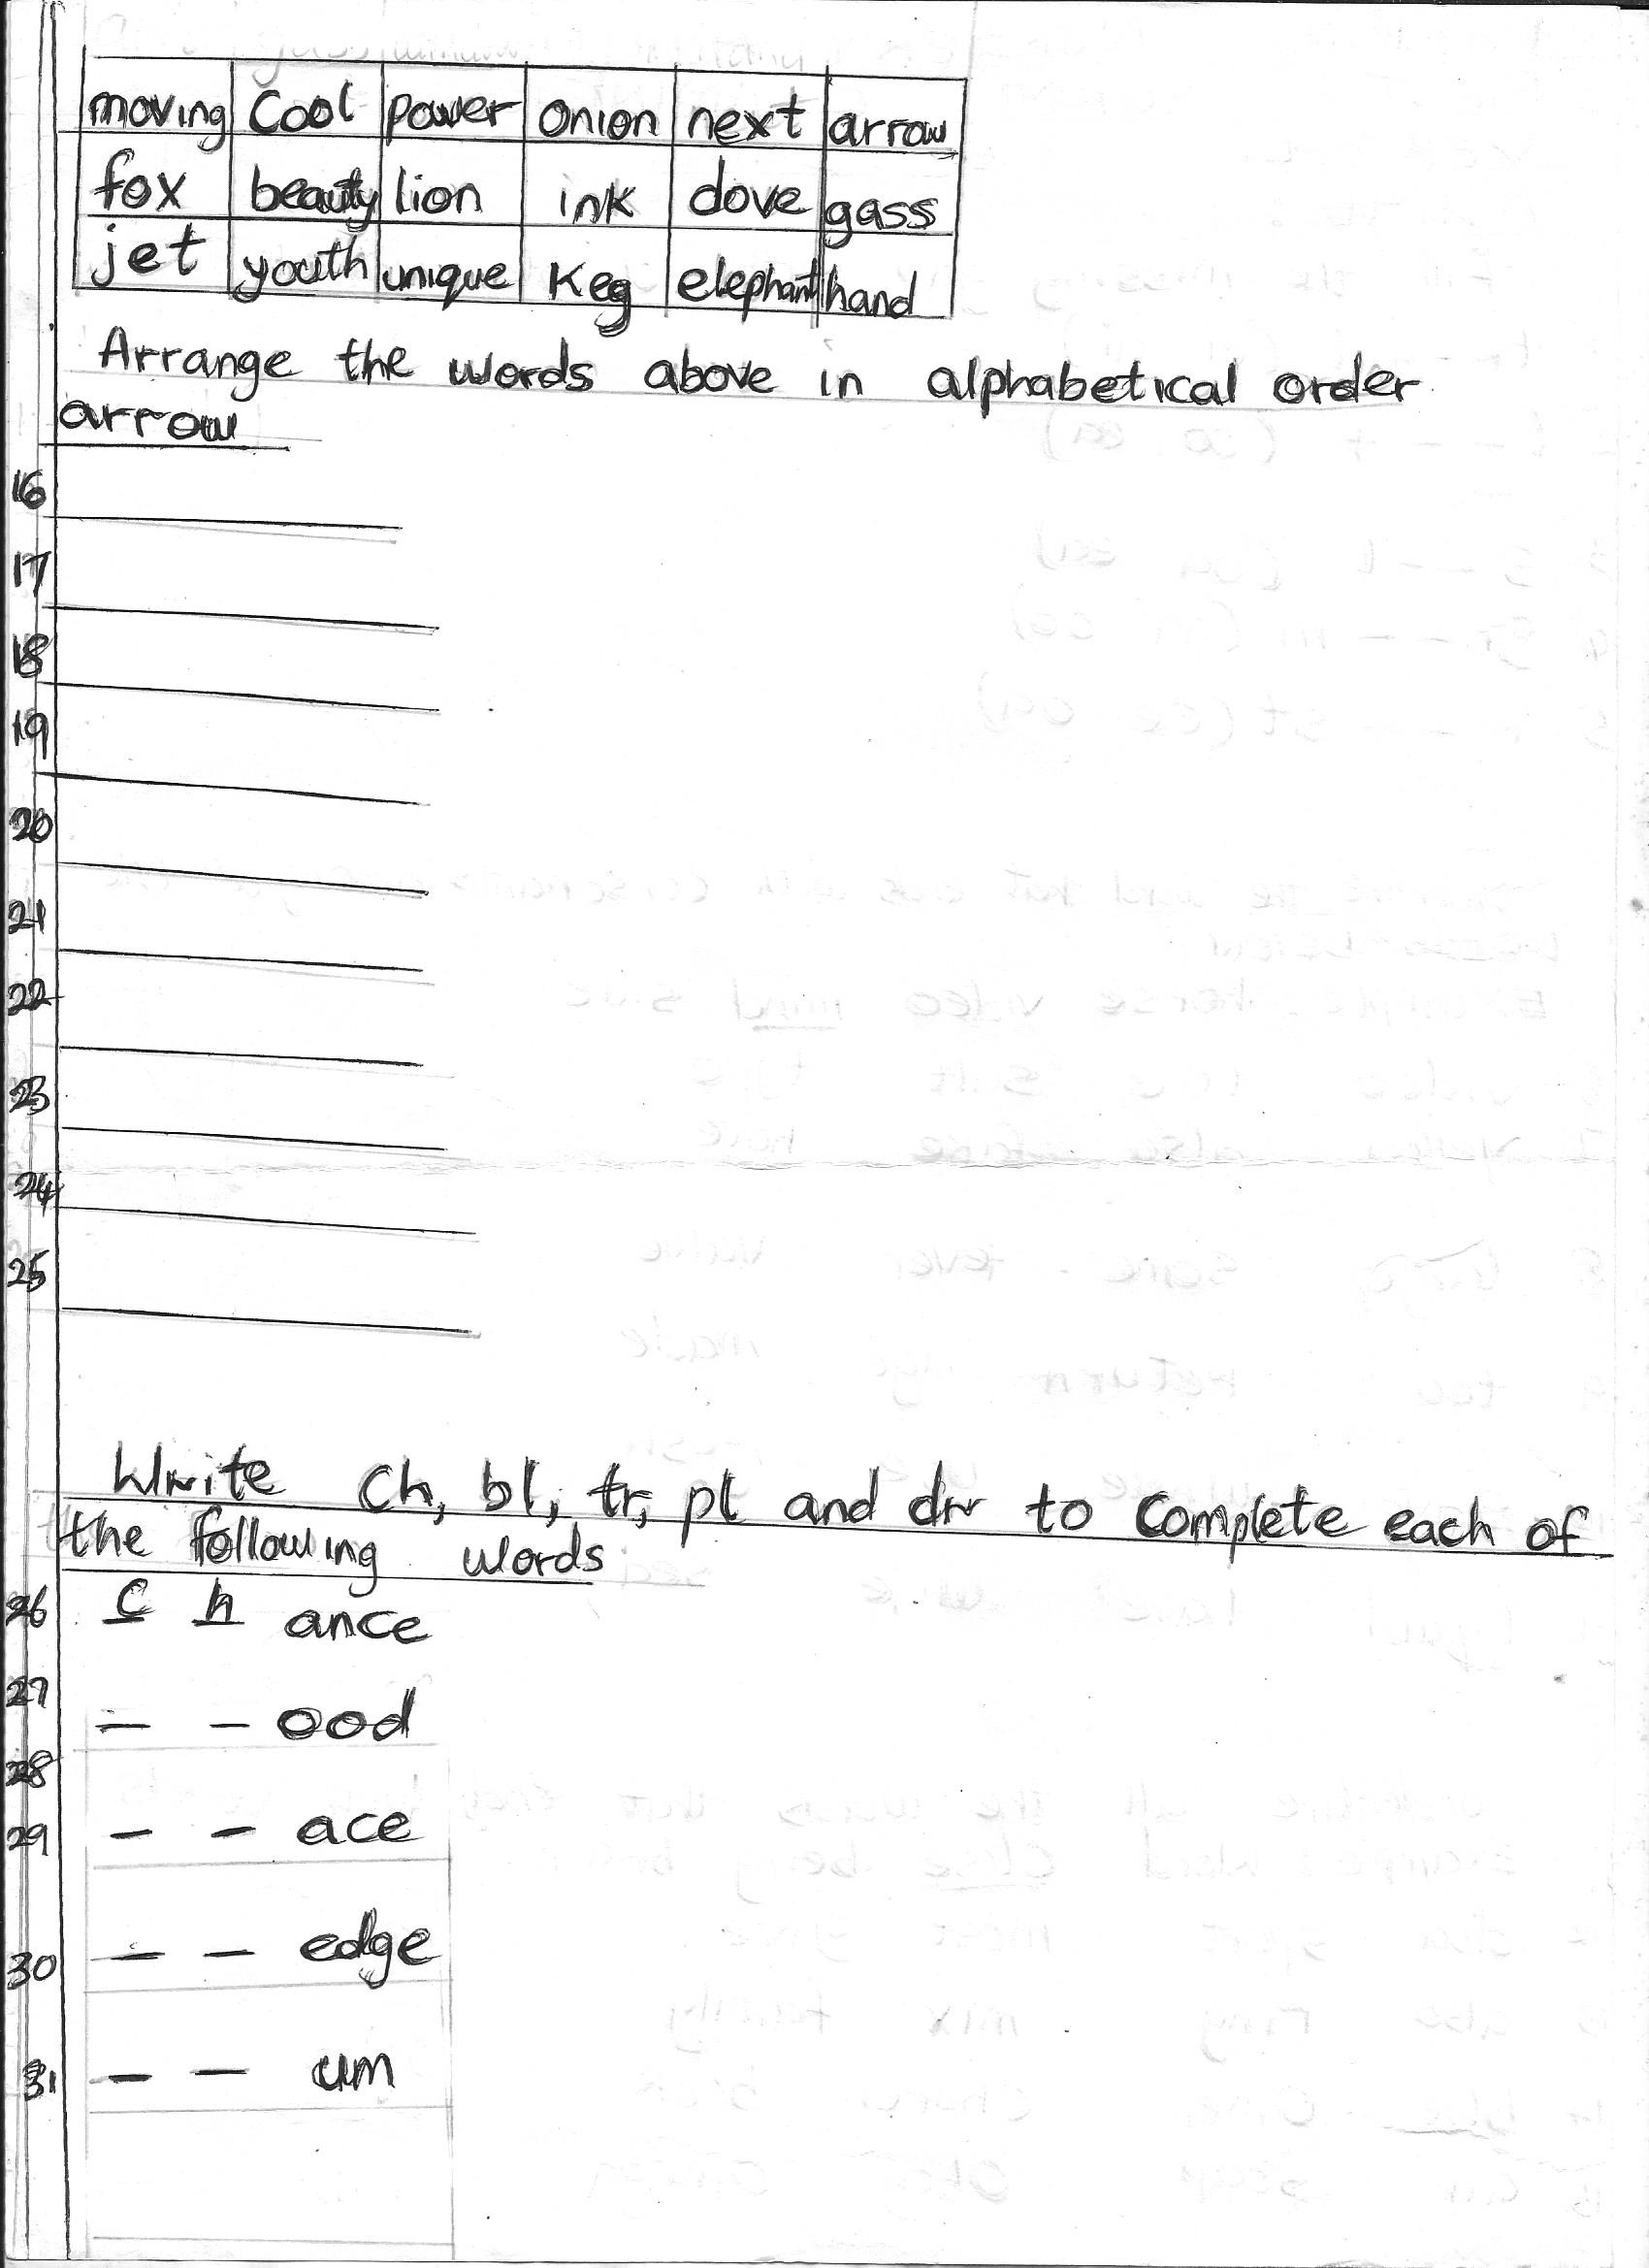 moving Cool power onion next arrow
fox beauty lion ink dove gass
jet youth unique keg elephant hand
Arrange the words above in alphabetical order
arrow
16
17
18
19
20
21
22
23
24
25
Write Ch, bl, tr, pl and dr to complete each of
the following words
26 c h ance
27 _ _ ood
28
29 _ _ ace
30 _ _ edge
31 _ _ um